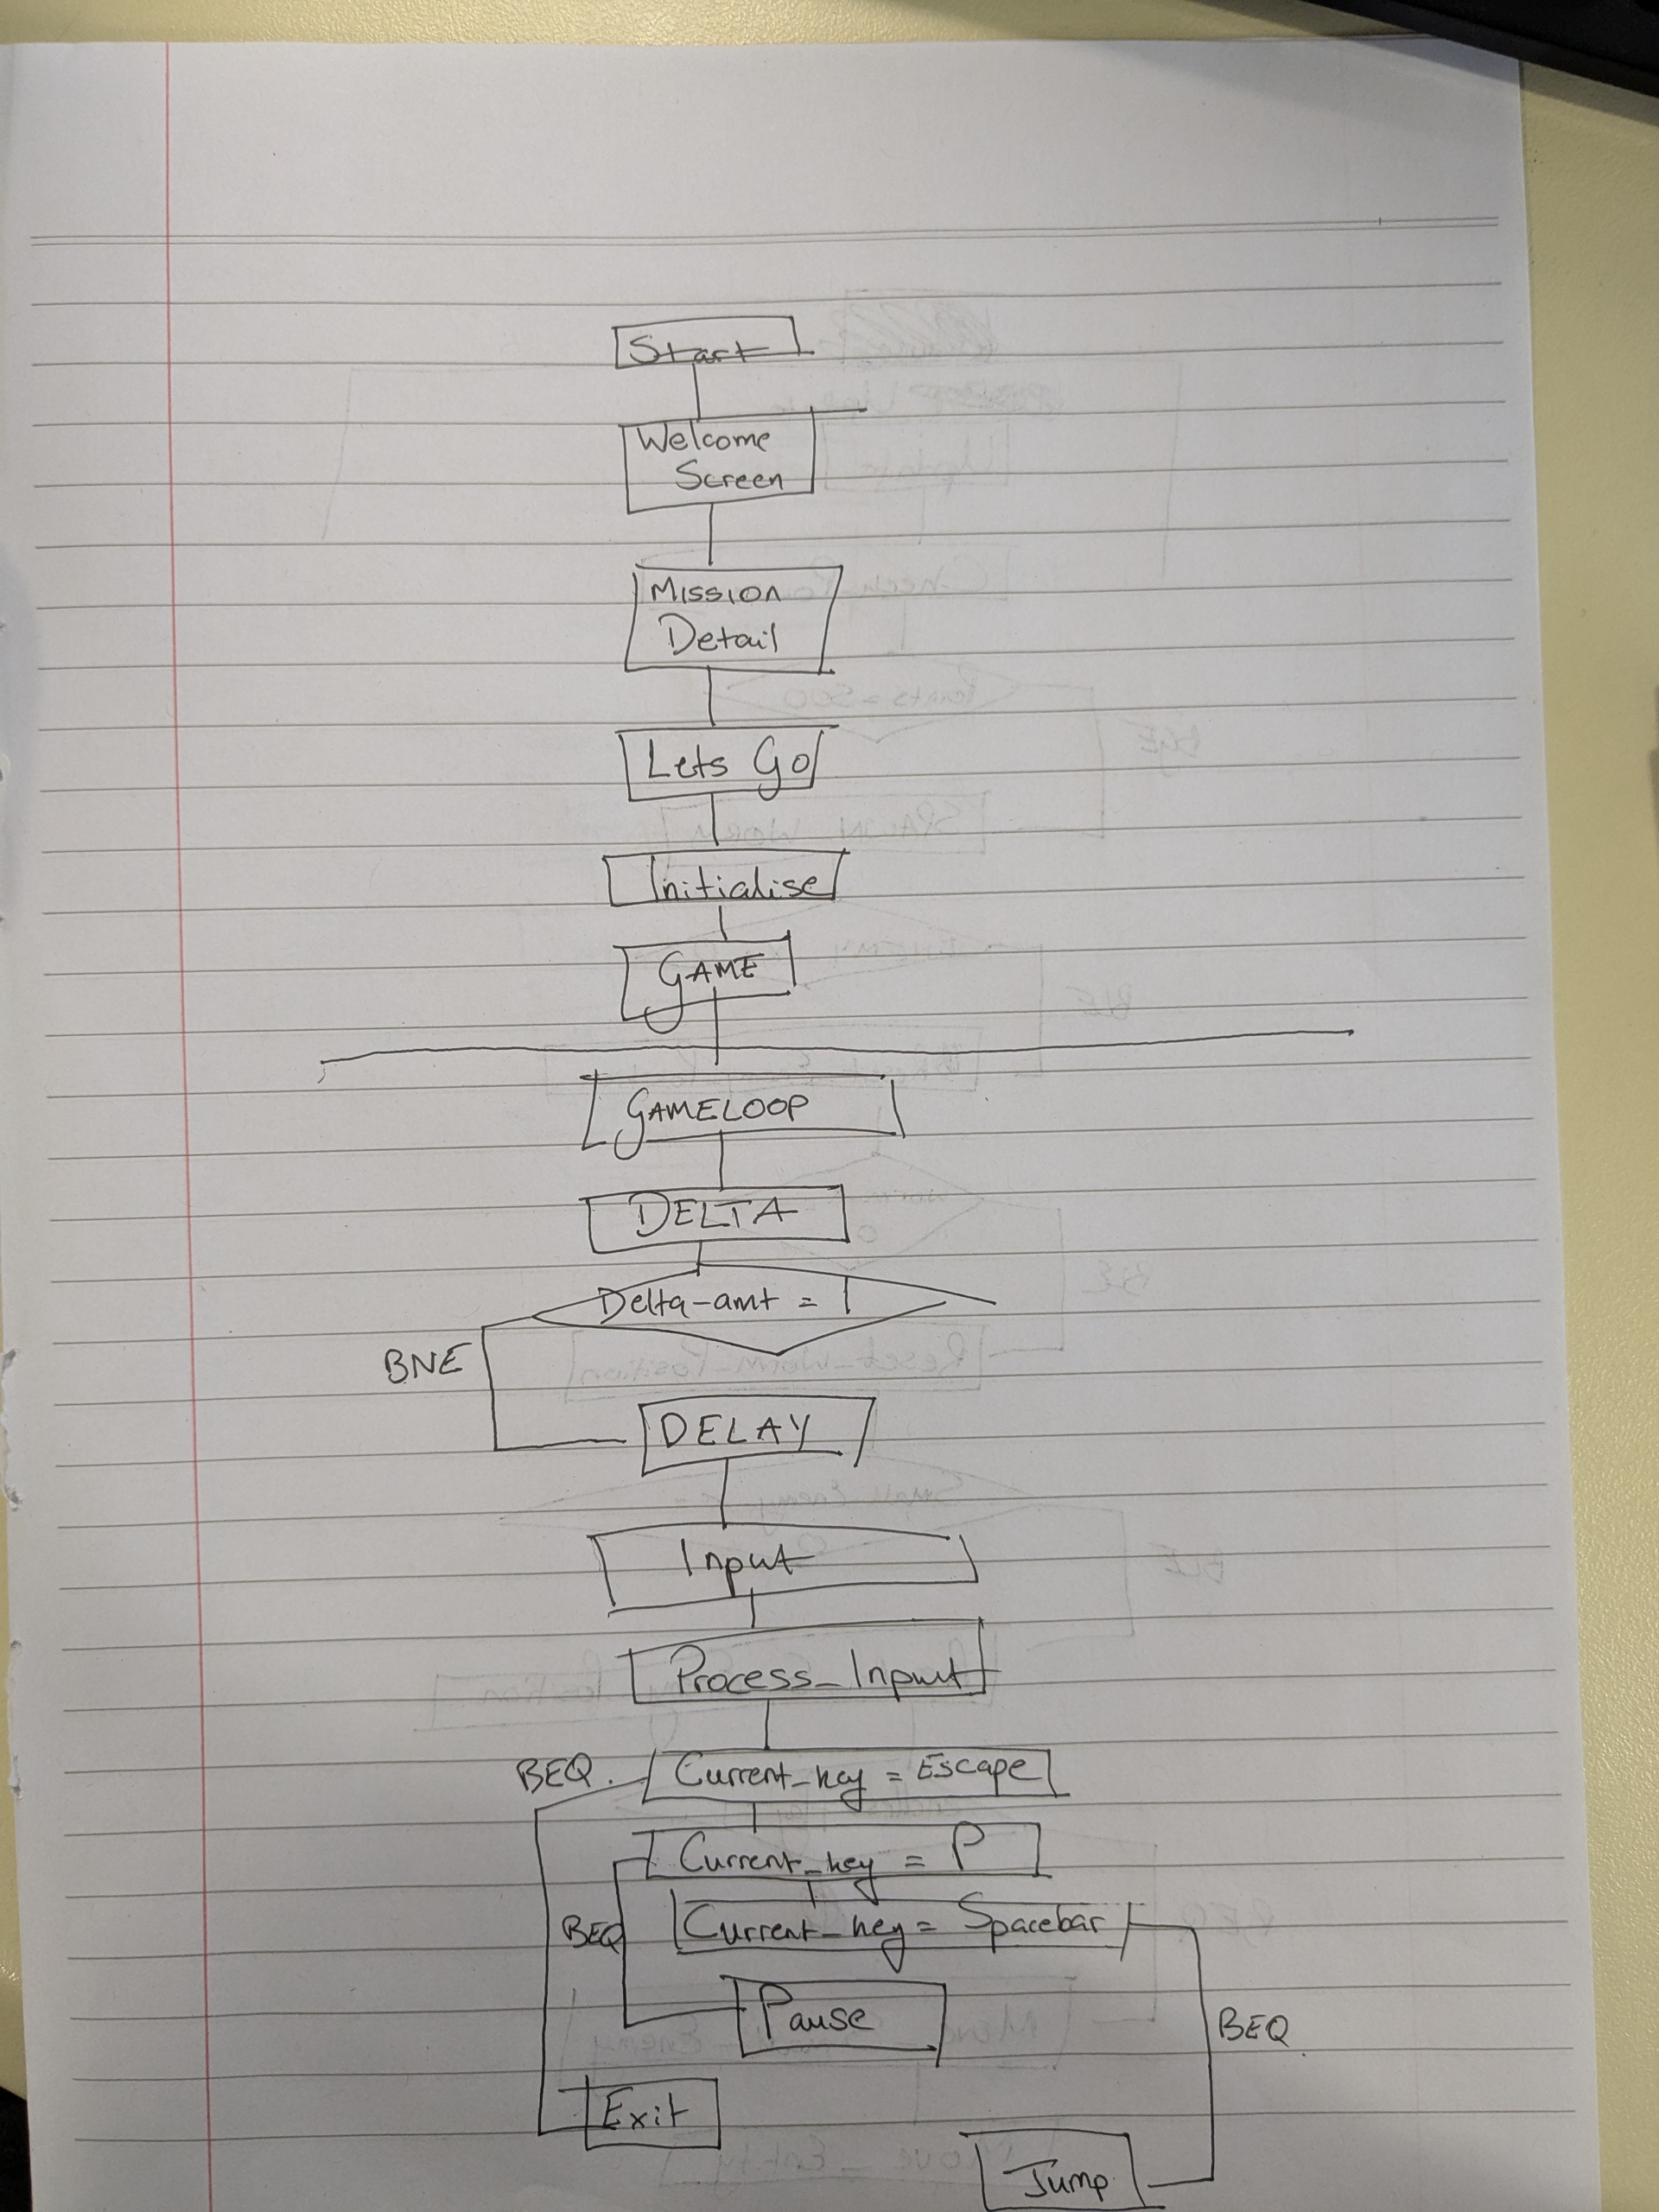 Start
Welcome
Screen
Mission
Detail
Lets Go
Initialise
GAME
GAMELOOP
DELTA
Delta-amt = 1
BNE
DELAY
Input
Process_Input
BEQ.
Current_key = Escape
Current_key = P
BEQ
Current_key = Spacebar
Pause
BEQ
Exit
Jump